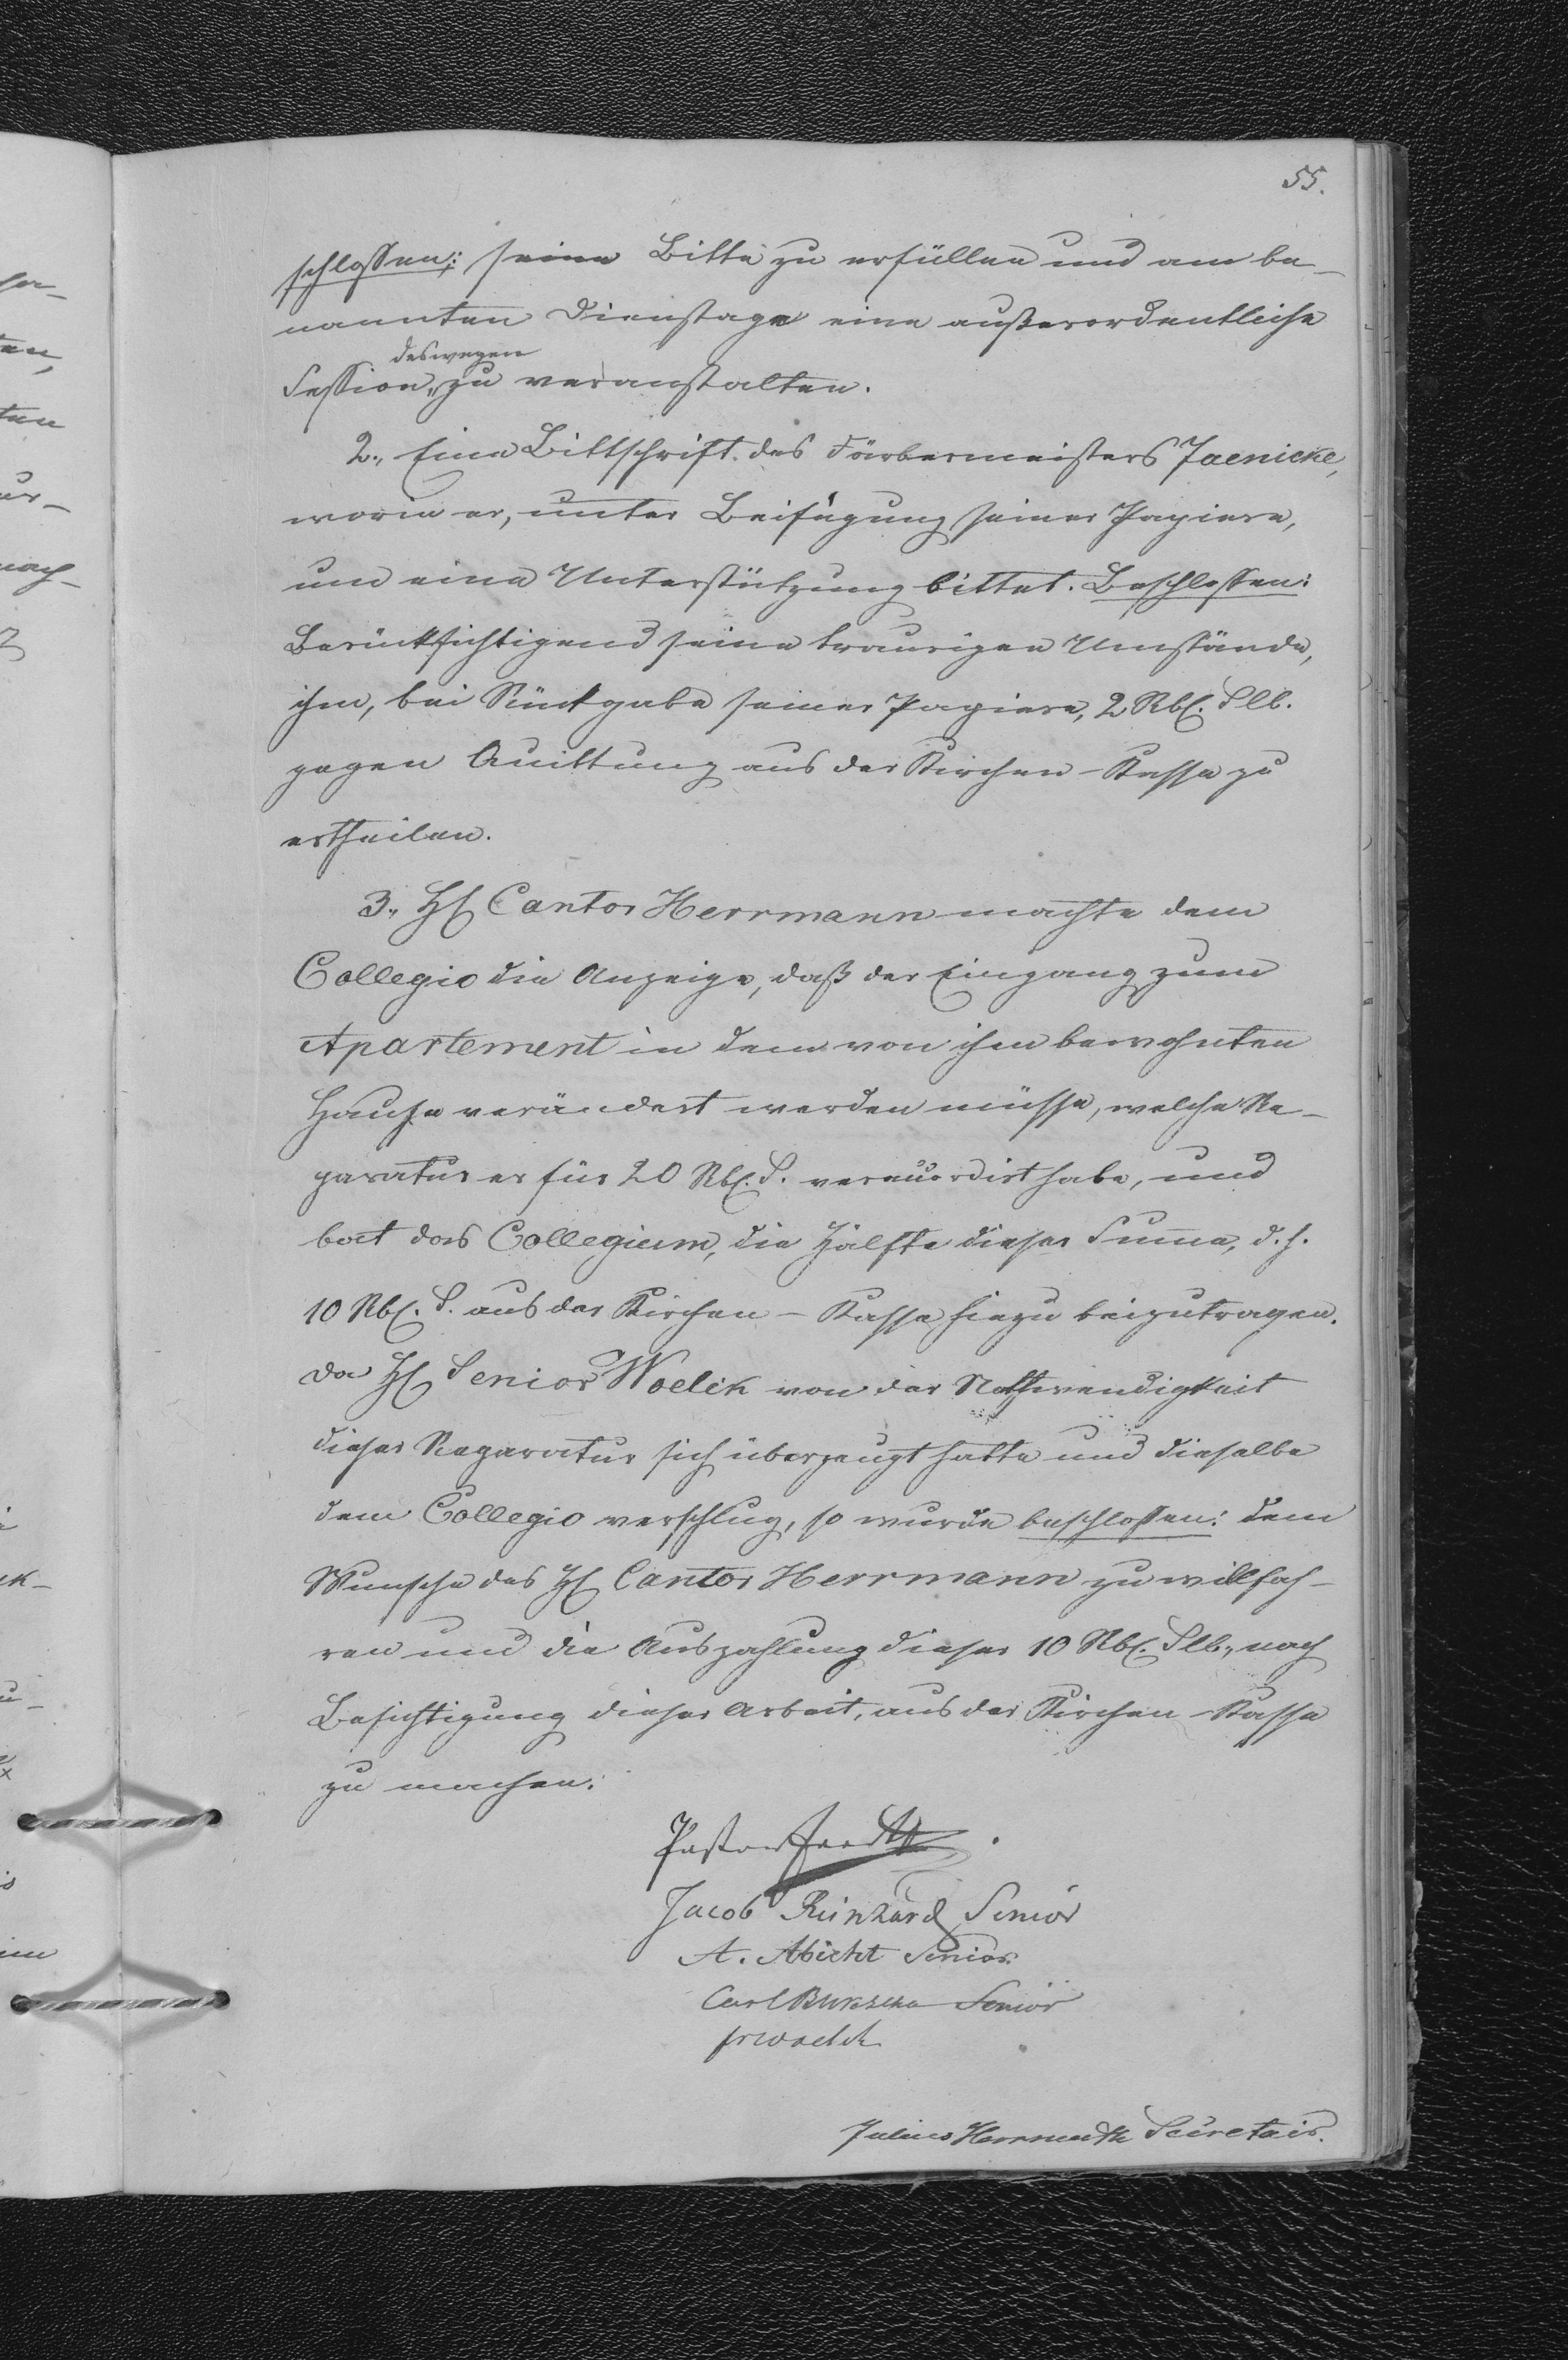 55.
schlossen: seine Bitte zu erfüllen und am be-
nannten Dienstage eine außerordentliche
deswegen
Session zu veranstalten.
2., Eine Bittschrift des Färbermeisters Jaenicke,
worin er, unter Beifügung seiner Papiere,
um eine Unterstützung bittet. Beschlossen:
Berücksichtigend seine traurigen Umstände,
ihm, bei Rückgabe seiner Papiere, 2 Rbl. Slb.
gegen Quittung aus der Kirchen-Kasse zu
ertheilen.
3., H Cantor Herrmann machte dem
Collegio die Anzeige, daß der Eingang zum
Apartement in dem von ihm bewohnten
Hause verändert werden müsse, welche Re-
paratur er für 20 Rbl. S. veraccordirt habe, und
bat das Collegium, die Hälfte dieser Summe, d. h.
10 Rbl. S. aus der Kirchen-Kasse hiezu beizutragen.
Da H Senior Woelck von der Nothwendigkeit
dieser Reparatur sich überzeugt hatte und dieselbe
dem Collegio vorschlug, so wurde beschlossen: dem
Wunsche des H Cantor Herrmann zu willfah-
ren und die Auszahlung dieser 10 Rbl. Slb., nach
Besichtigung dieser Arbeit, aus der Kirchen-Kasse
zu machen.
Pastor
Jacob Reinhard Senior
A. Abicht Senior
Carl Senior
Woelck
Julius Senretair.